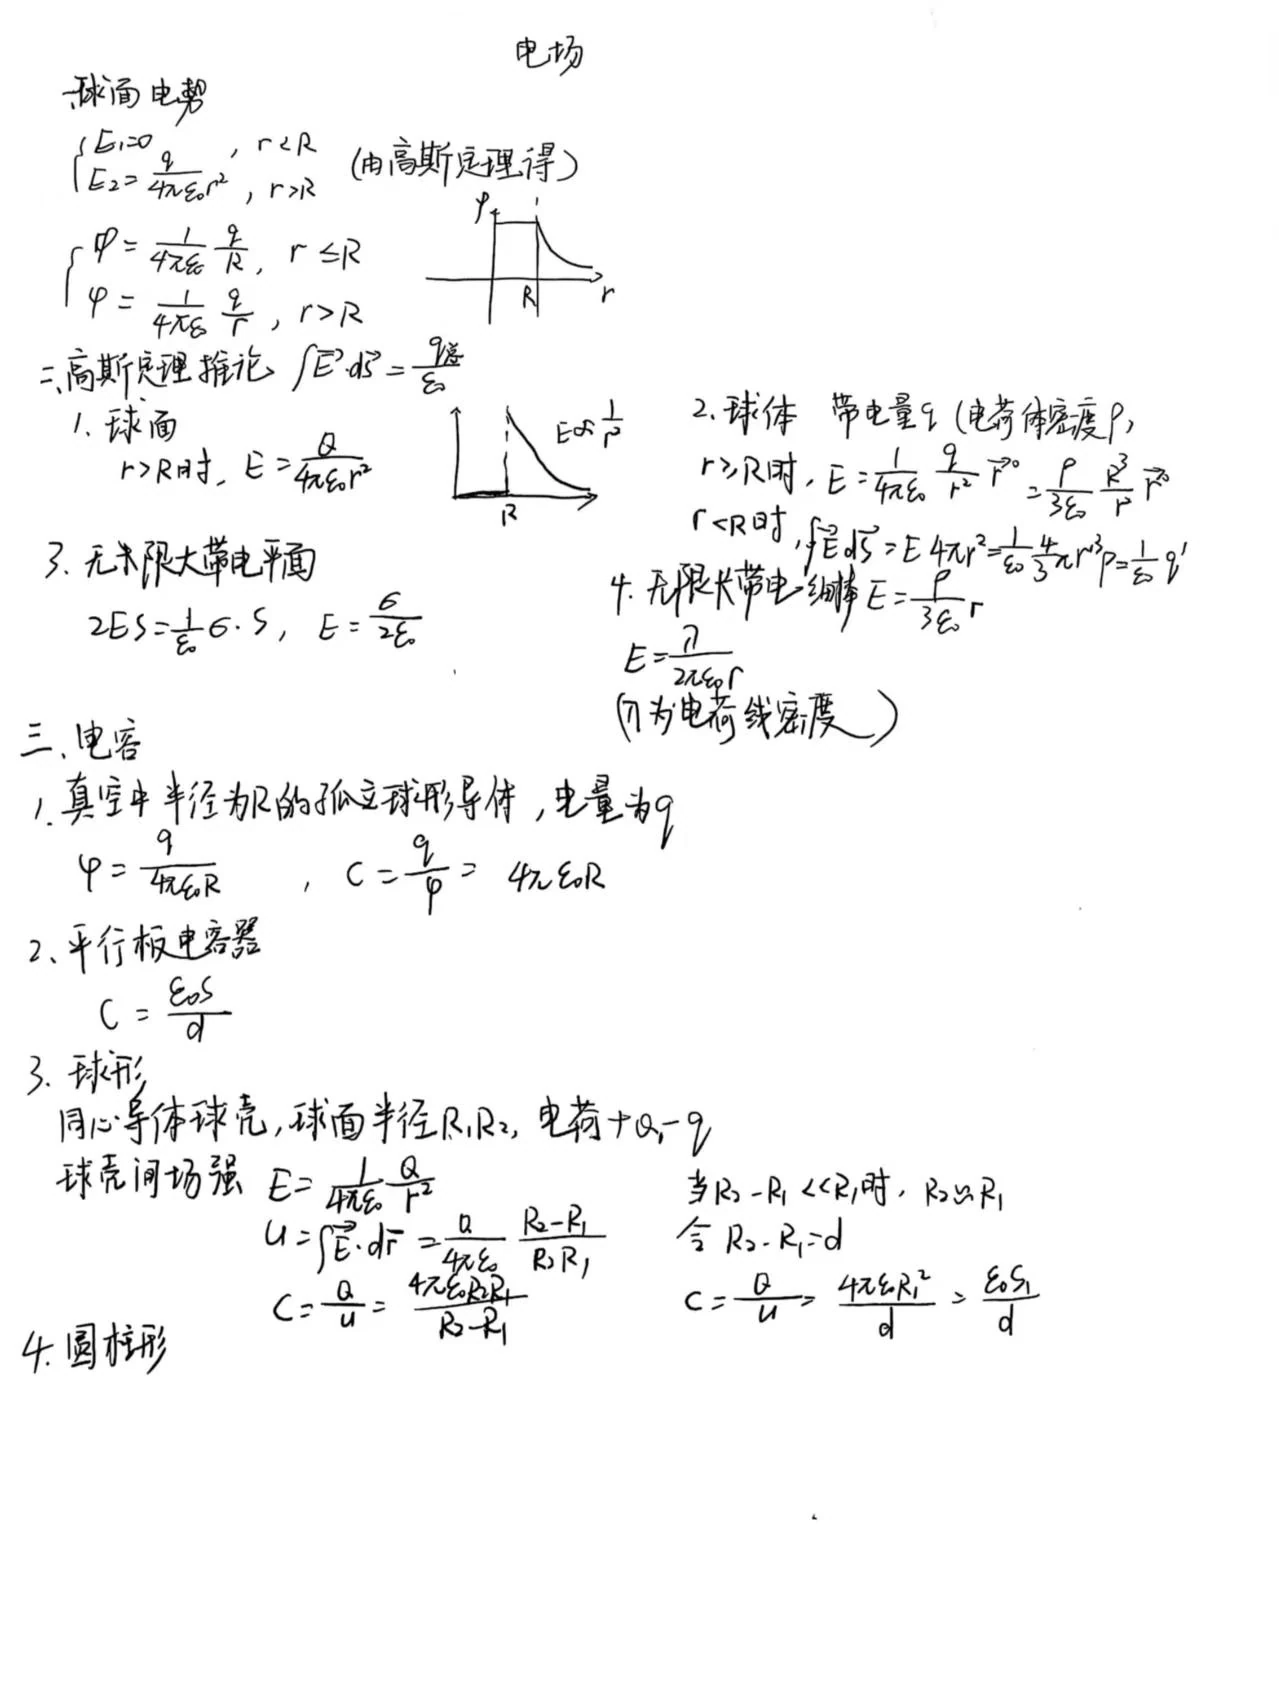 电场
一.球面电势
E₁=0 , r<R
E₂= q/4πε₀r² , r>R (由高斯定理得)
φ= 1/4πε₀ q/R , r≤R
φ= 1/4πε₀ q/r , r>R
φ
R
r
二、高斯定理推论 ∫E⃗·dS⃗= q总/ε₀
1. 球面
r>R时, E= Q/4πε₀r²
E∝ 1/r²
R
2. 球体 带电量q (电荷体密度ρ)
r≥R时, E= 1/4πε₀ q/r² r⃗⁰ = ρ/3ε₀ R³/r² r⃗⁰
r<R时, ∮E⃗dS⃗=E4πr²= 1/ε₀ 4/3 πr³ρ= 1/ε₀ q'
E= ρ/3ε₀ r
3. 无限大带电平面
2ES= 1/ε₀ σ·S, E= σ/2ε₀
4. 无限长带电细棒
E= λ/2πε₀r
(λ为电荷线密度)
三、电容
1. 真空中半径为R的孤立球形导体, 电量为q
φ= q/4πε₀R , C= q/φ = 4πε₀R
2、平行板电容器
C= ε₀S/d
3. 球形
同心导体球壳, 球面半径R₁R₂, 电荷+Q,-q
球壳间场强 E= 1/4πε₀ Q/r²
U=∫E⃗·dr⃗= Q/4πε₀ R₂-R₁/R₂R₁
C= Q/U = 4πε₀R₂R₁/R₂-R₁
当R₂-R₁<<R₁时, R₂≈R₁
令R₂-R₁=d
C= Q/U = 4πε₀R₁²/d = ε₀S₁/d
4. 圆柱形